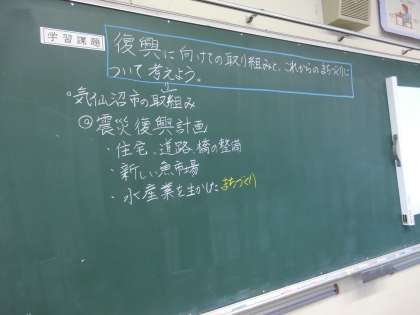 学習課題
復興に向けての取り組みと、これからのまちづくりに
ついて考えよう。
○気仙沼市の取組み
@震災復興計画
・住宅、道路、橋の整備
・新しい魚市場
・水産業を生かしたまちづくり